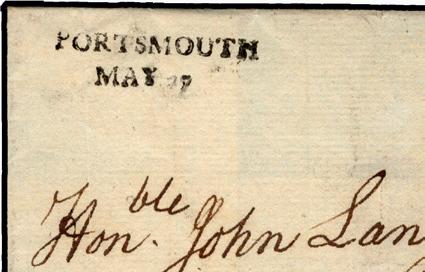 PORTSMOUTH
MAY 27
Honble. John Lan